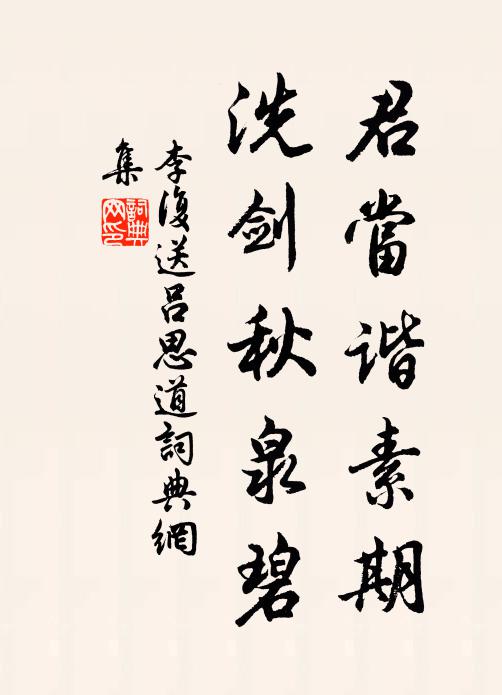 君當谐素期
洗剑秋泉碧
李復送吕思道詞典網
集
詞典
网印